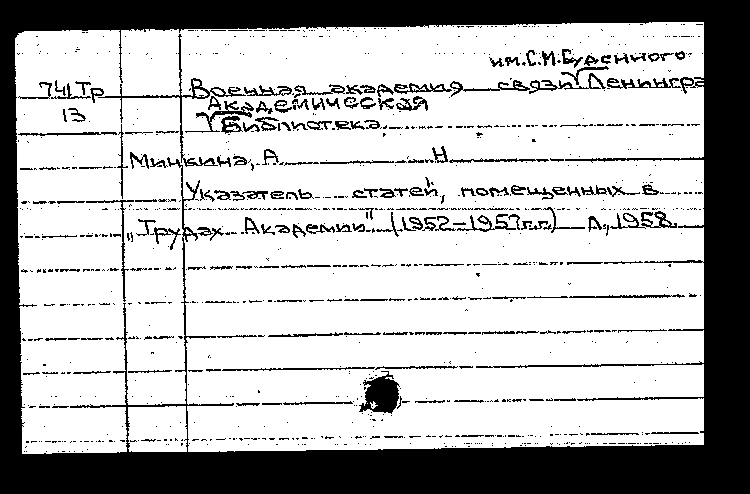 им. С.М. Буденного
741 Тр Военная академия связи Ленингра
13 Академическая
Библиотека.
Минкина, А Н
Указатель статей, помещенных в
„Трудах Академии" (1952–1957 г.г.) Л., 1958.